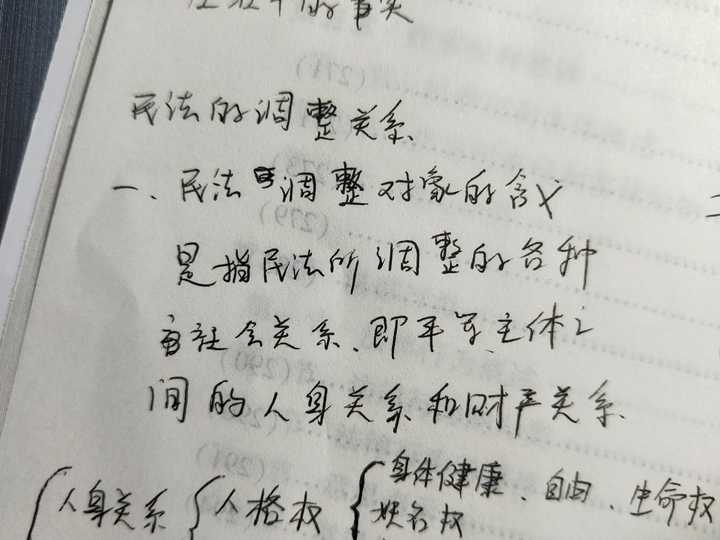 民法的调整关系
一、民法调整对象的含义
是指民法所调整的各种
社会关系、即平等主体之
间的人身关系和财产关系
人身关系 人格权 身体健康、自由、生命权
姓名权